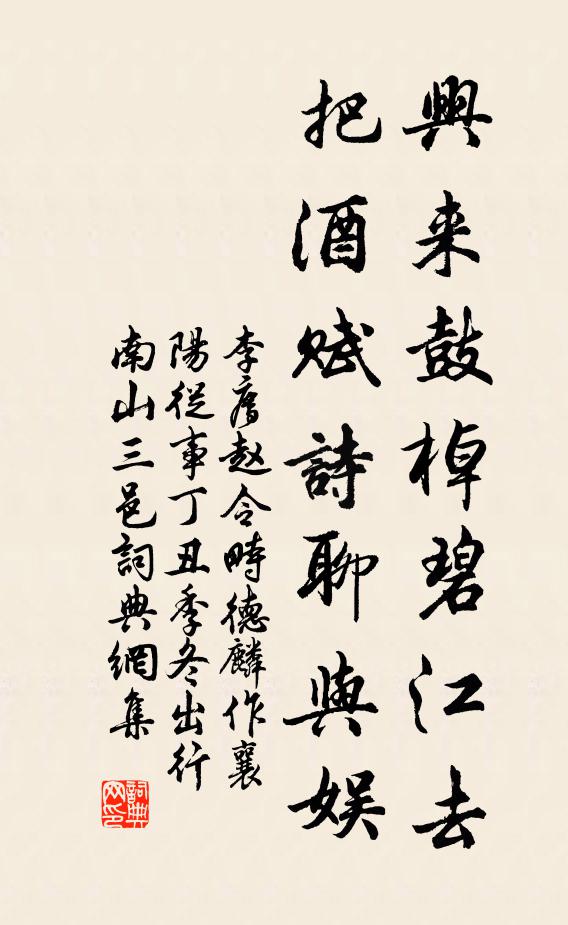 興来鼓棹碧江去
把酒赋詩聊與娱
李廌赵令畤德麟作襄
陽從事丁丑季冬出行
南山三邑詞典網集
詞典网印